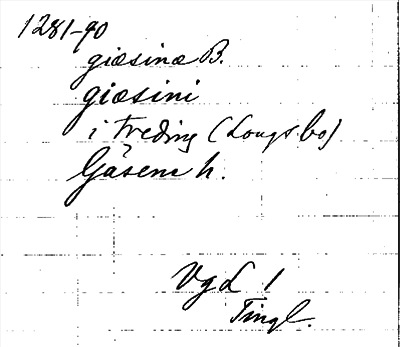 1281-90
giæsinæ B.
giæsini
i træding (Lougsbo)
Gäsene h.
VgL 1
Tingl.